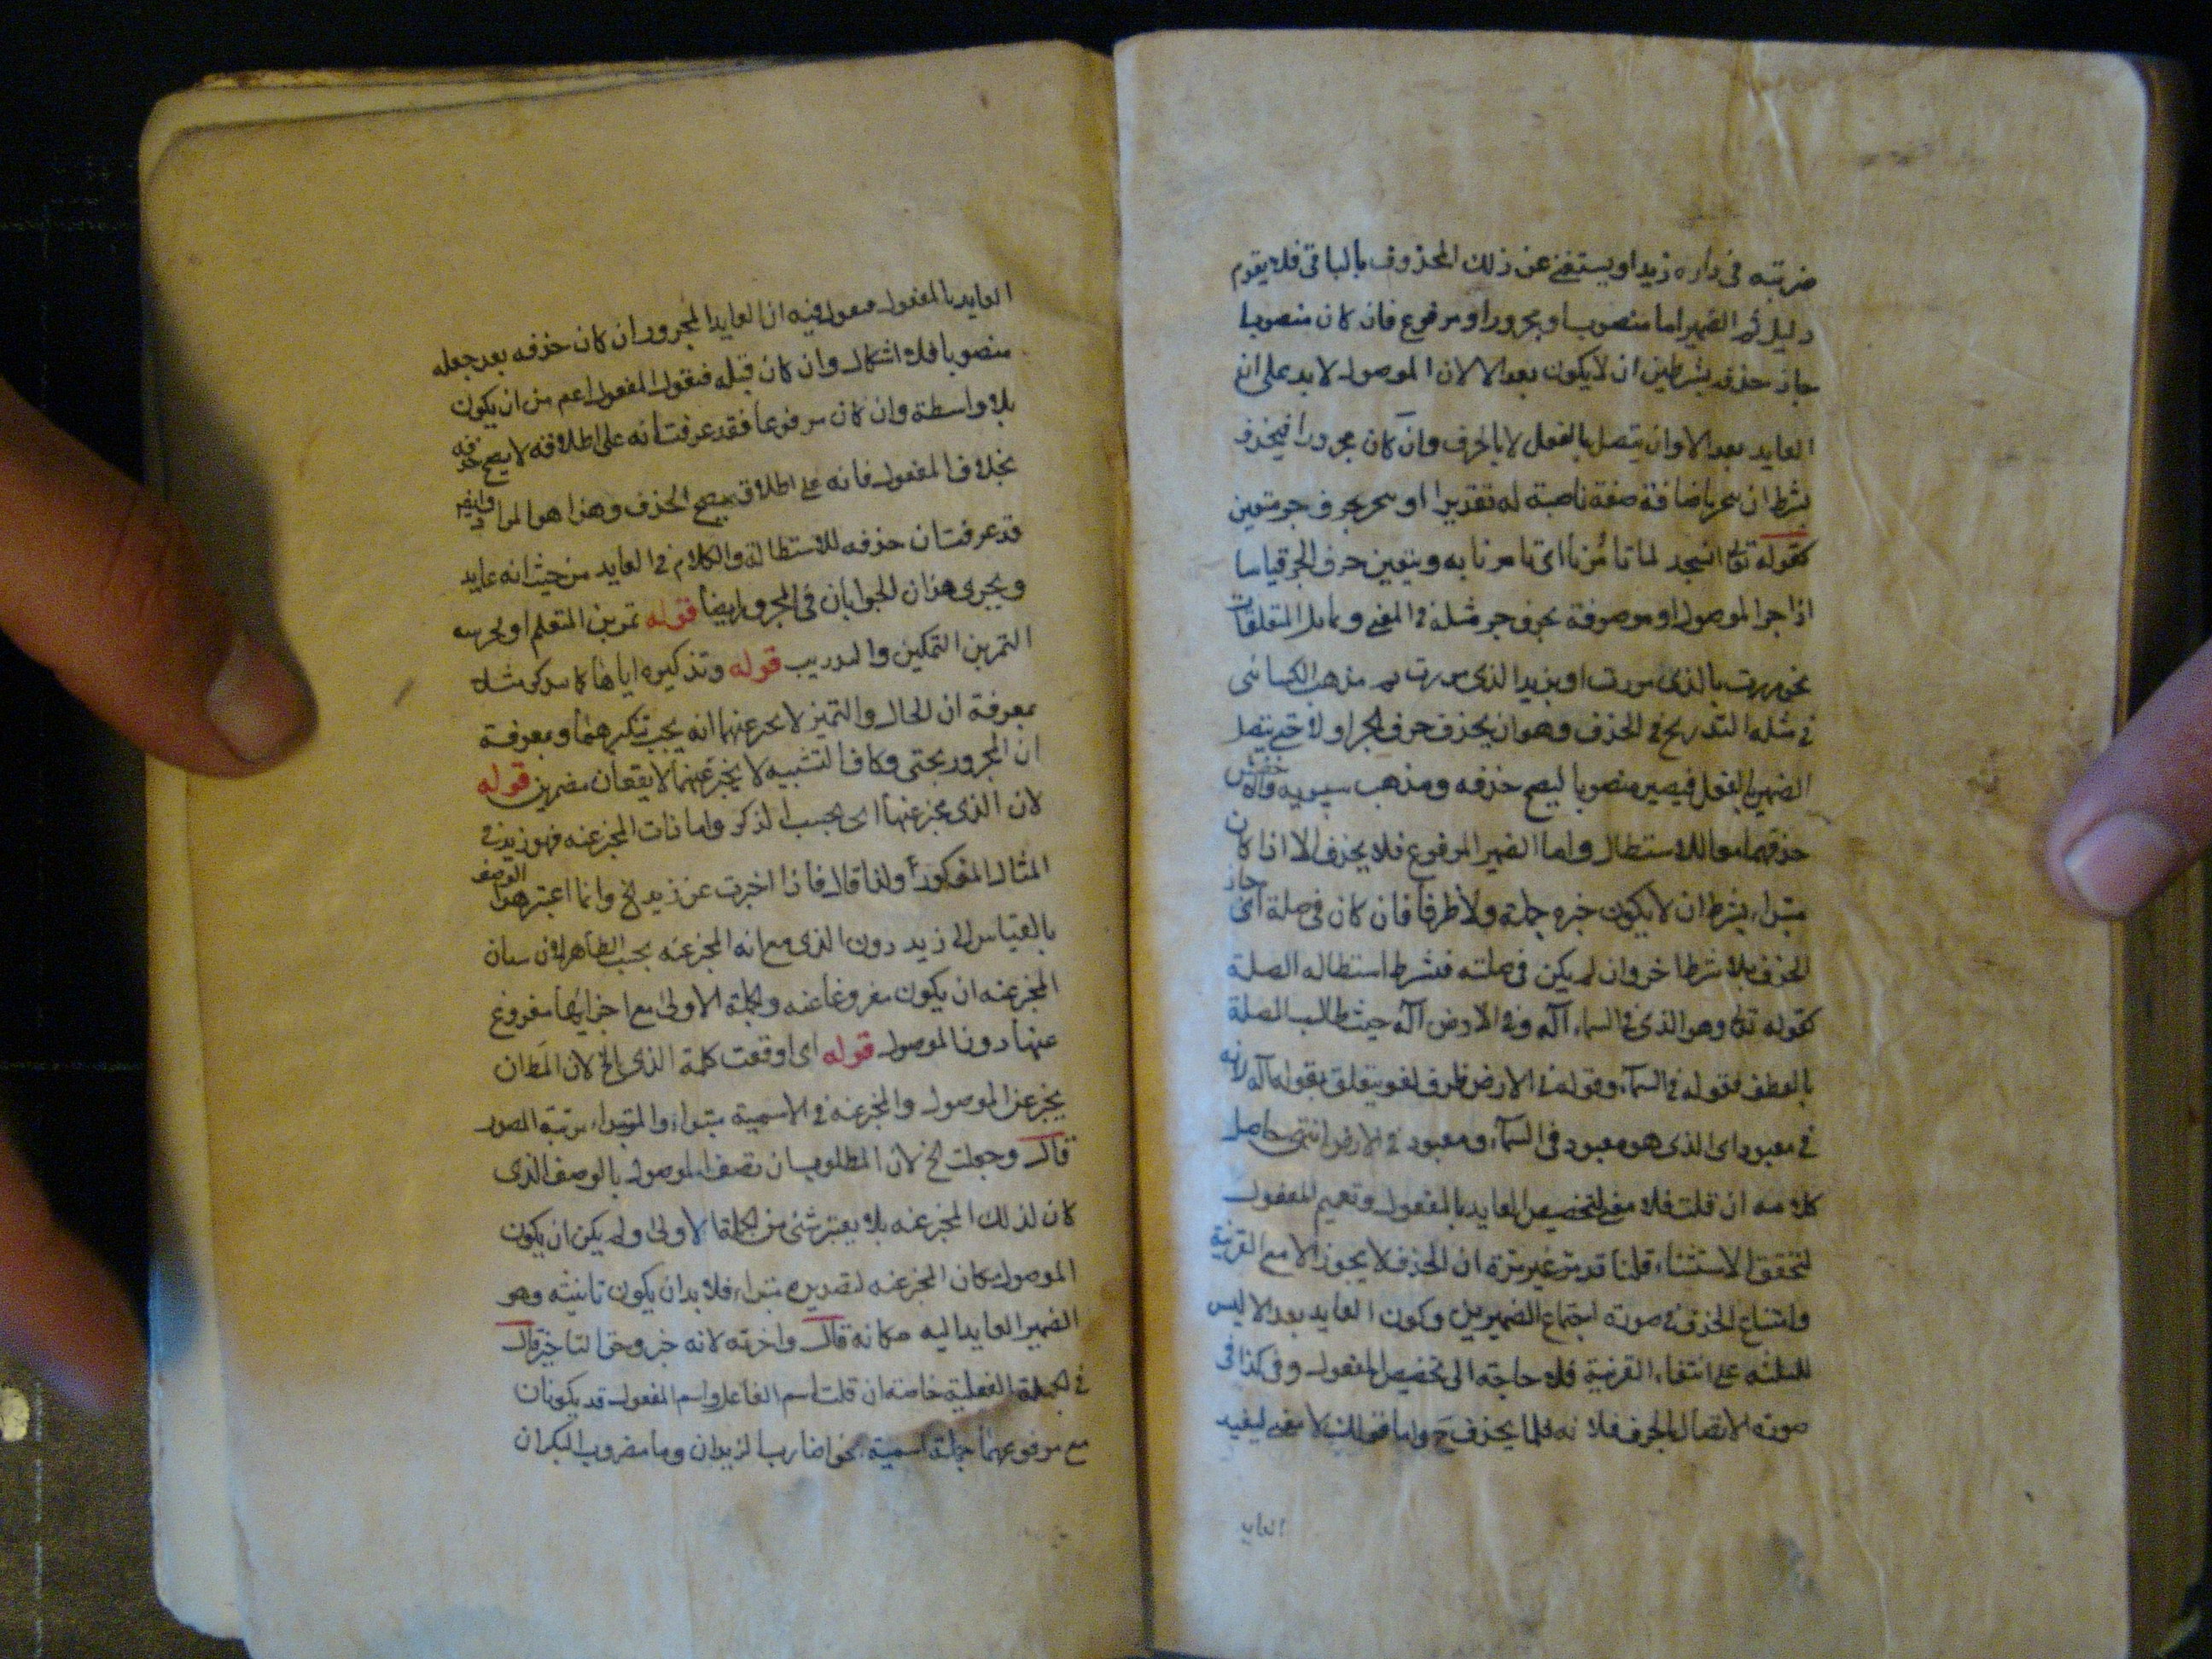 ضربته في داره زيد او يستغنى عن ذلك المحذوف بالباقي فلا يقوم
دليل ثم الضمير اما منصوب او مجرور او مرفوع فان كان منصوبا
جاز حذفه بشرطين ان لا يكون بعد الا لان الموصول لا بد على ان
العايد بعد الا وان يتصل بالفعل لا بالحرف وان كان مجرورا فيحذف
بشرط ان ينجر باضافة صفة ناصبة له تقديرا او ينجر بحرف جر متعين
كقوله تع انسجد لما تأمرنا اى تامرنا به ويتعين حرف الجر قياسا
اذا جر الموصول او موصوفه بحرف جر مثله في المعنى وتماثل المتعلقان
نحو مررت بالذى مررت او بزيد الذى مررت به مذهب الكسائى
في مثله التدريج في الحذف وهو ان يحذف حرف الجر اولا حتى يتصل
الضمير بالفعل فيصير منصوبا ليصح حذفه ومذهب سيبويه والاخفش
حذفهما معا للاستطال واما الضمير المرفوع فلا يحذف الا اذا كان
مبتداء بشرط ان لا يكون خبره جملة ولا ظرفا فان كان في صلة اى جاز
الحذف بلا شرط اخر وان لم يكن في صلته فبشرط استطاله الصلة
كقوله تع وهو الذى في السماء آله وفي الارض آله حيث طالب الصلة
بالعطف فقوله في السماء وقوله في الارض ظرف لغو يتعلق بقوله آله لانه
في معبود اى الذى هو معبود في السماء ومعبود في الارض انتهى حاصل
كلامه ان قلت فلا معنى لتخصيص العايد بالمفعول وتعميم المفعول
لتحقق الاستثناء قلنا قد مر غير مرة ان الحذف لا يجوز الا مع القرينة
وامتناع الحذف في صورة اجتماع الضميرين وكون العايد بعد الا ليس
للتنبيه على انتفاء القرينة فلا حاجة الى تخصيص المفعول وفي كذا في
صورة الاتصال بالحرف فلانه قلما يحذف ح واما قولك لا معنى لتقييد
العايد
العايد بالمفعول فنقول فيه ان العايد المجرور ان كان حذفه بعد جعله
منصوبا فلا اشكال وان كان قبله فنقول المفعول اعم من ان يكون
بلا واسطة وان كان مرفوعا فقد عرفت انه على اطلاقه لا يصح حذفه
بخلاف المفعول فانه على اطلاقه يصح الحذف وهذا هو المراد وايضا
قد عرفت ان حذفه للاستطالة والكلام في العايد من حيث انه عايد
ويجرى هذان الجوابان في المجرور ايضا قوله تمرين المتعلم او تجربته
التمرين التمكين والتدريب قوله وتذكيره اياها كما تذكر مثلا
بمعرفة ان الحال والتميز لا يخبر عنهما انه يجب تنكيرهما وبمعرفة
ان المجرور بحتى وكاف التشبيه لا يخبر عنهما لا يقعان مضمرين قوله
لان الذى مخبر عنها اى بحسب الذكر واما ذات المخبر عنه فهو زيد في
المثال المذكور ولذا قال فاذا اخبرت عن زيد الخ وانما اعتبر هذا الوصف
بالقياس الى زيد دون الذى مع انه المخبر عنه بحسب الظاهر لان شان
المخبر عنه ان يكون مفروغا عنه والجملة الاولى مع اجزايها مفروغ
عنها دون الموصول قوله اى اوقعت كلمة الذى الخ لان المط ان
يخبر عن الموصول والمخبر عنه في الاسمية مبتداء والمبتداء مرتبة الصدر
قال وجعلت الخ لان المطلوب ان تصف الموصول بالوصف الذى
كان لذلك المخبر عنه بلا يعتبر شئ من الجملة الاولى ولم يكن ان يكون
الموصول مكان المخبر عنه لتصديره مبتداء فلا بد ان يكون نائبته وهو
الضمير العايد اليه مكانه قال واخرته لانه خبر وحق التاخير قال
في الجملة الفعلية خاصة ان قلت اسم الفاعل واسم المفعول قد يكونان
مع مرفوعهما جملة اسمية نحو اضارب الزيدان وما مضروب البكران